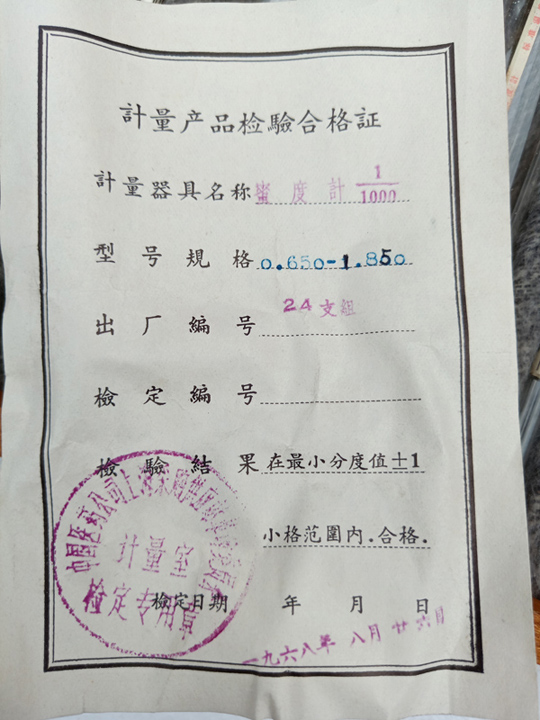 計量产品检驗合格証
計量器具名称 蜜度計 1/1000
型号規格 0.650-1.850
出厂編号 24支組
檢定編号
檢驗結果 在最小分度值±1
小格范圍内.合格.
檢定日期 年 月 日
一九六八年 八月 廿六日
中国医药公司上海采购供应站
計量室
檢定专用章